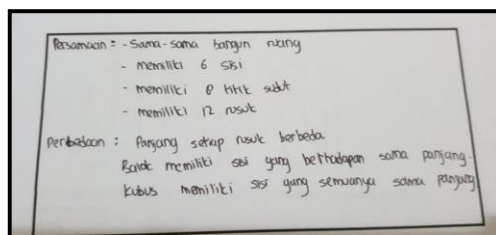 Persamaan : - Sama-sama bangun ruang
- memiliki 6 sisi
- memiliki 8 titik sudut
- memiliki 12 rusuk
Perbedaan : Panjang setiap rusuk berbeda
Balok memiliki sisi yang berhadapan sama panjang.
Kubus memiliki sisi yang semuanya sama panjang